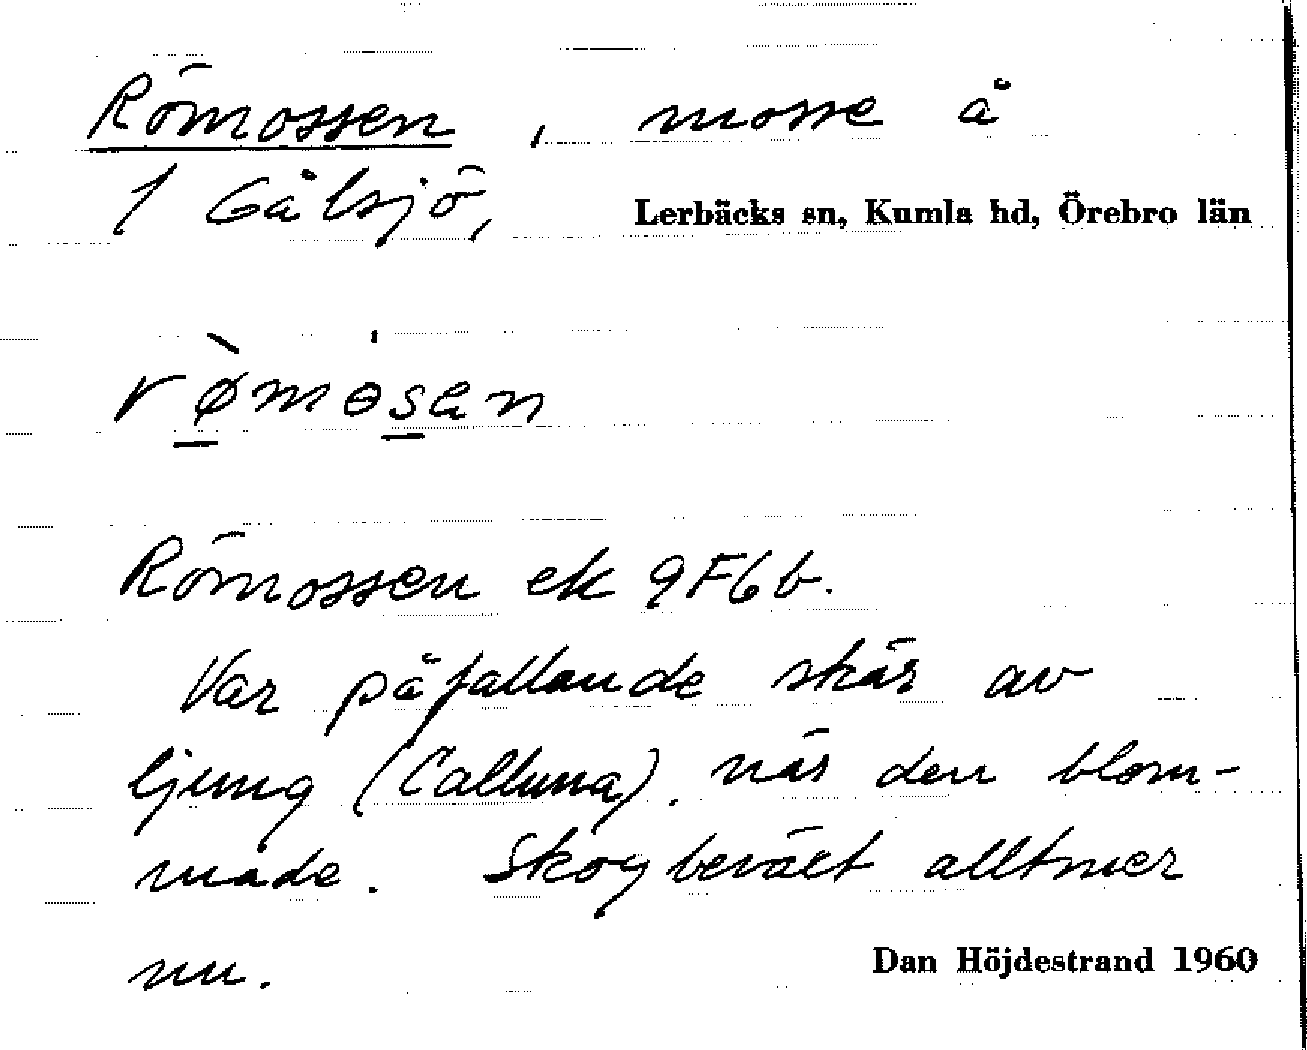 Römossen, mosse å
1 Gålsjö, Lerbäcks sn, Kumla hd, Örebro län
rø̀mɵsen
Römossen ek 9F6b.
Var påfallande skär av
ljung (Calluna), när den blom-
made. Skogbevält alltmer
nu. Dan Höjdestrand 1960